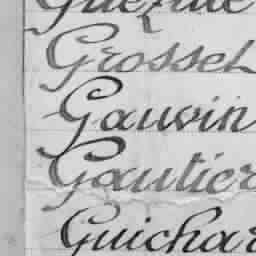 Grossel
Gauvin
Gautier
Guichar